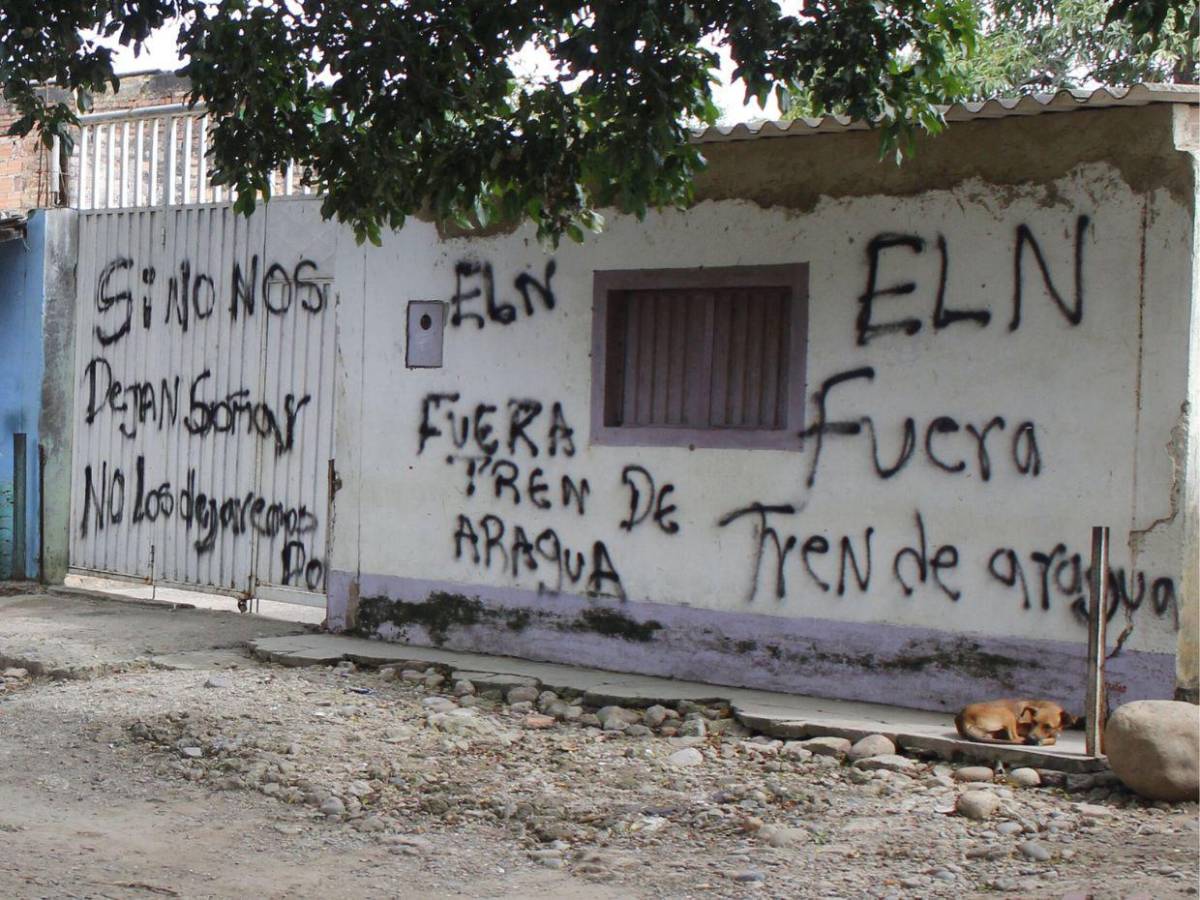 Si NO NOS
DeJAN SoñaY
NO Los dejaremos
Do
ELN
FUERA
TREN DE
ARAgUA
ELN
Fuera
Tren de aragua